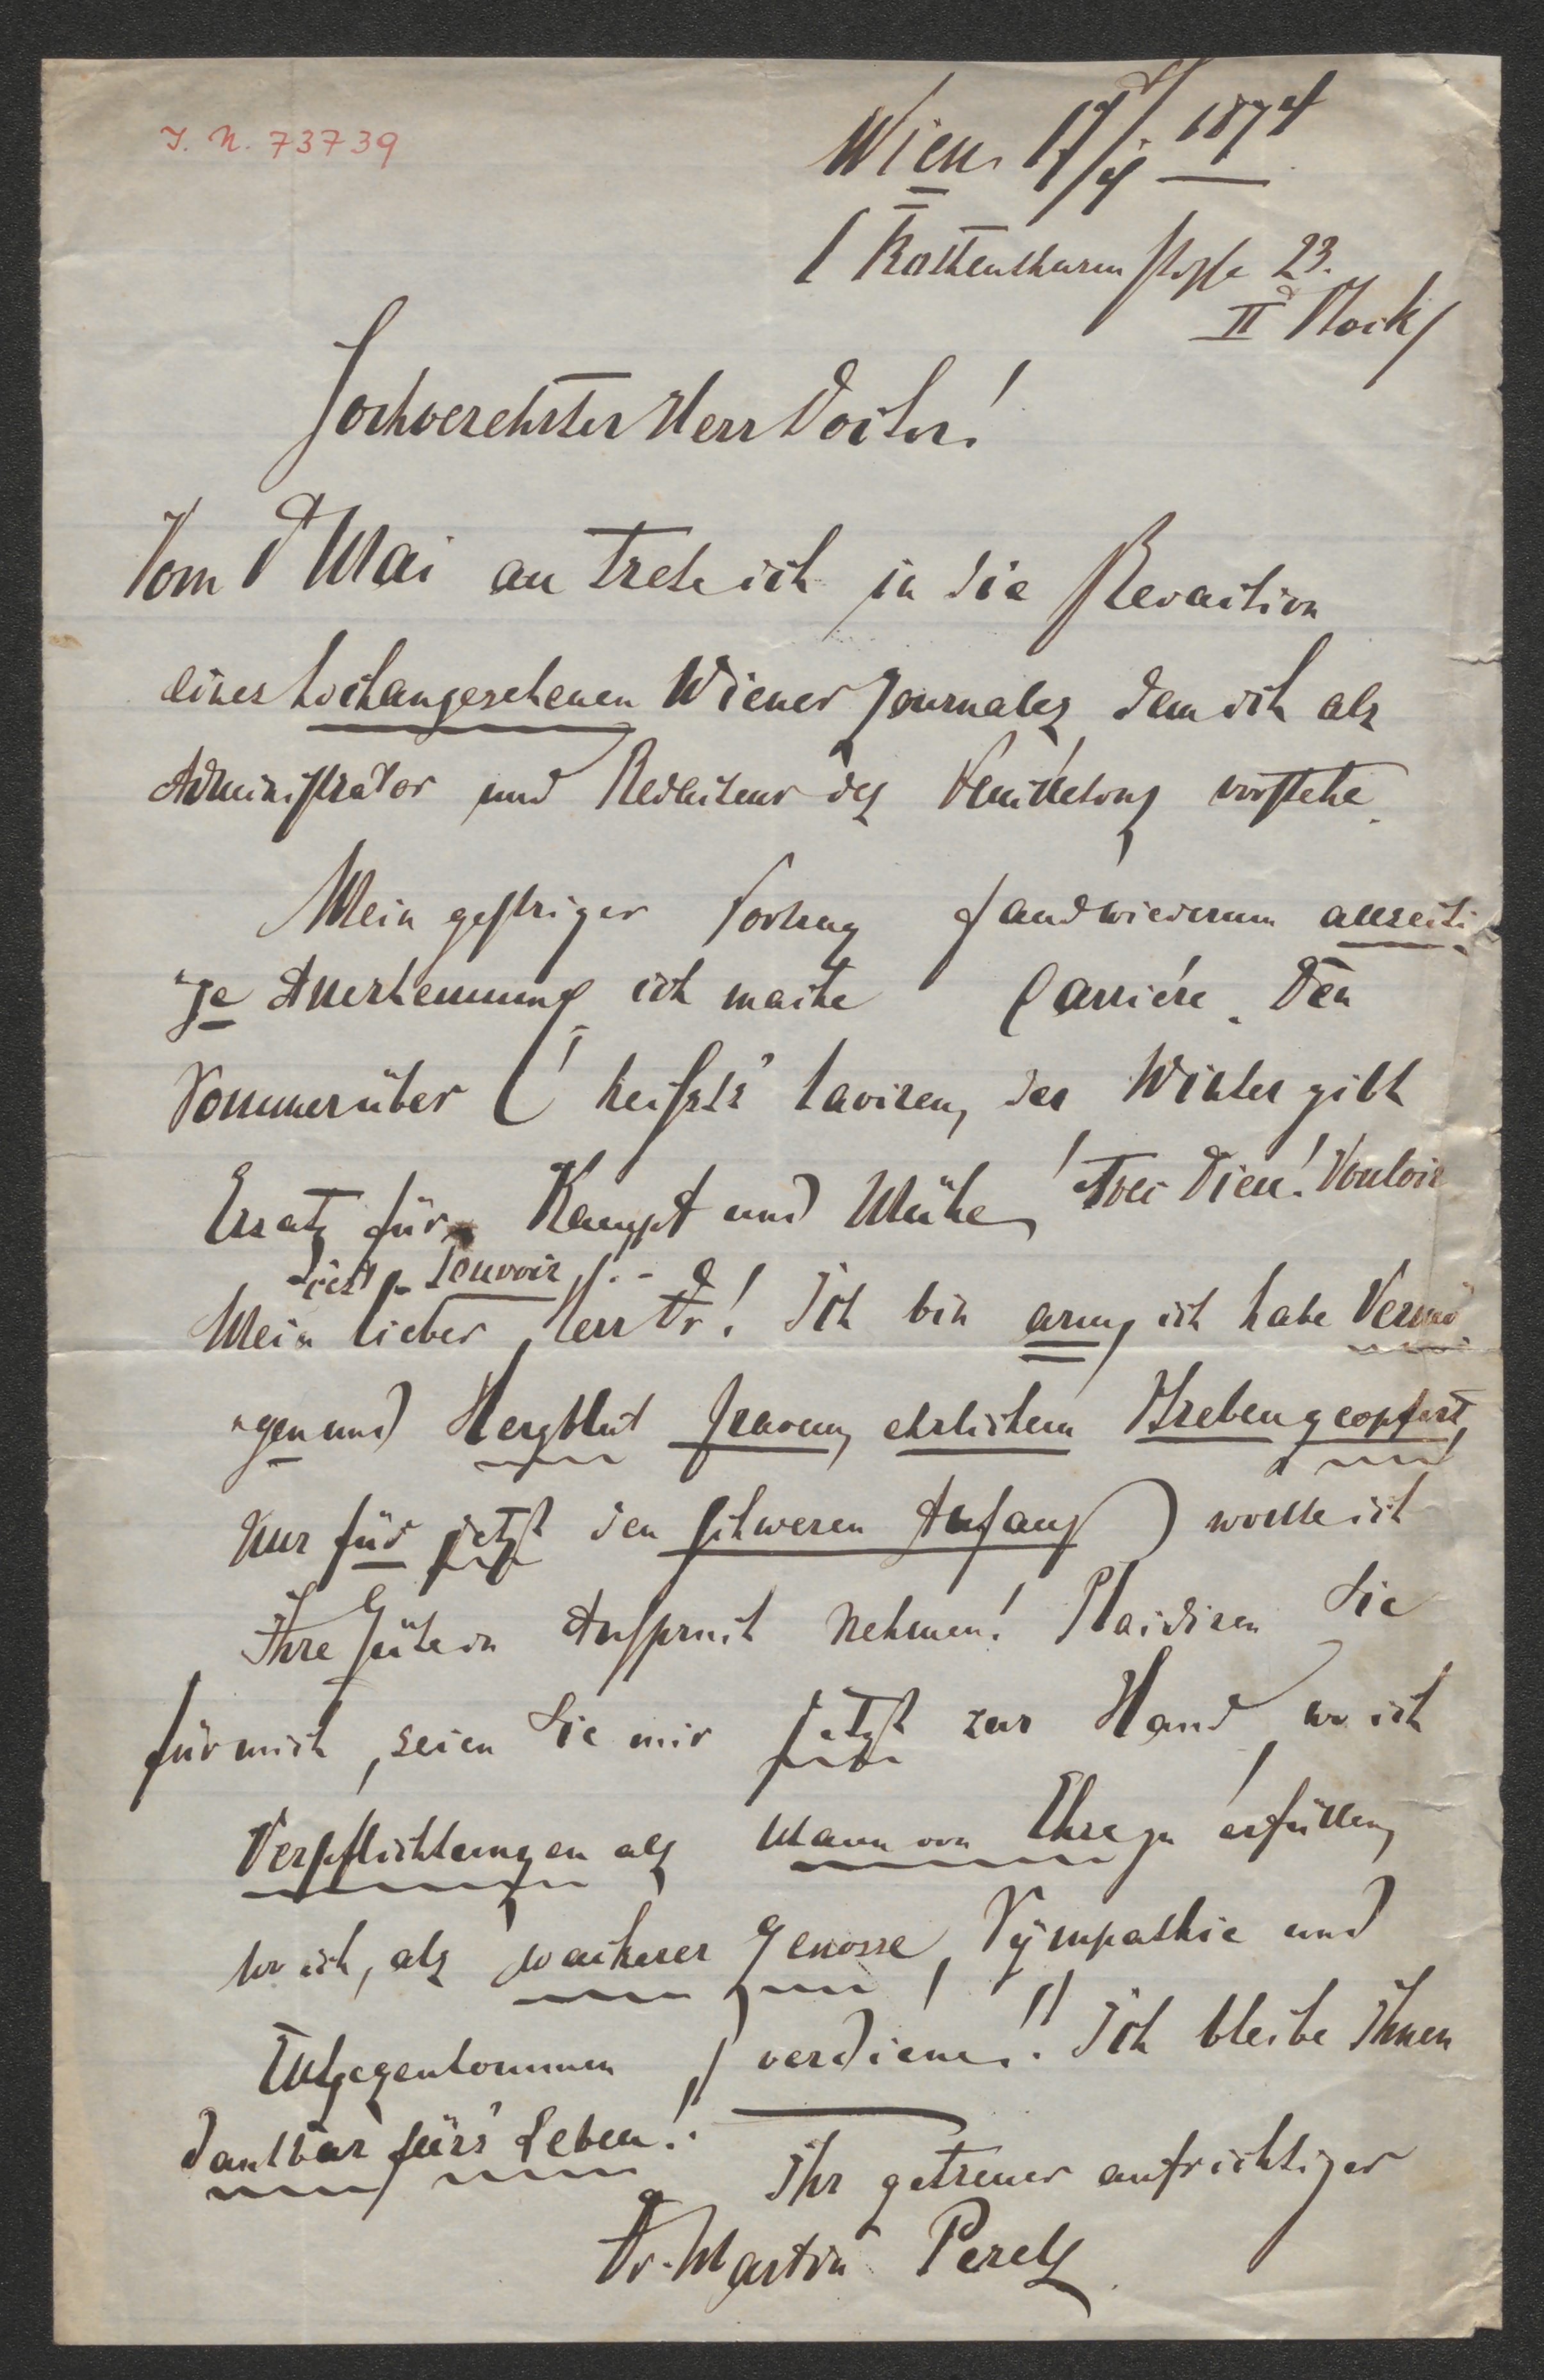 I. N. 73739
Wien 17/4 1874
/ Rothenthurmstraße 23.
II Stock /
Hochverehrter Herr Doctor!
Vom 1 Mai an trete ich in die Redaction
eines hochangesehenen Wiener Journales dem ich als
Administrator und Redacteur des Feuilletons vorstehe.
Mein gestriger Vortrag fand wiederum allseiti-
"ge Anerkennung ich mache Carriére. Den
Sommerüber heißts' laviren, der Winter gibt
Ersatz für Kampf und Mühe, Dieu! Vouloir
c'est Pouvoir! –
Mein lieber Herr Dr! Ich bin arm, ich habe Vermö-
"gen und Herzblut bravem, ehrlichem Streben geopfert,
Nur für jetzt den schweren Anfang wollte ich
Ihre Güte in Anspruch nehmen! Plaidiren Sie
für mich, seien Sie mir jetzt zur Hand, wo ich
Verpflichtungen als Mann von Ehre zu erfüllen,
wo ich, als wackerer Genosse, Sympathie und
Entgegenkommen verdiene!! Ich bleibe Ihnen
dankbar fürs' Leben!
Ihr getreuer aufrichtiger
Dr. Martin Perels